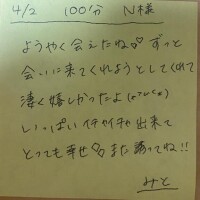 4/2 100分 N様
ようやく会えたね♡ ずっと
会いに来てくれようとしてくれて
凄く嬉しかったよ
いっぱいイチャイチャ出来て
とっても幸せ♡ また誘ってね!!
みと